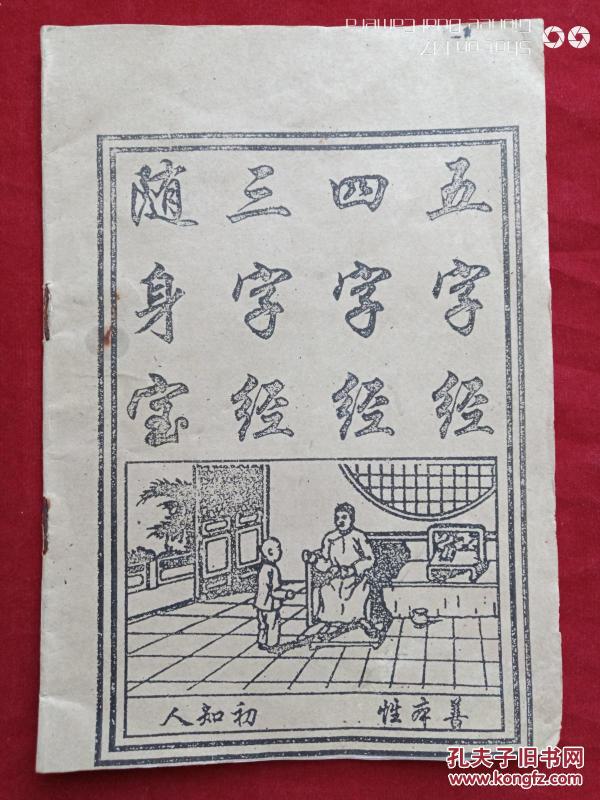 五字经
四字经
三字经
随身宝
人知初 性本善
Shot on
Gionee Dual Camera
孔夫子旧书网
www.kongfz.com